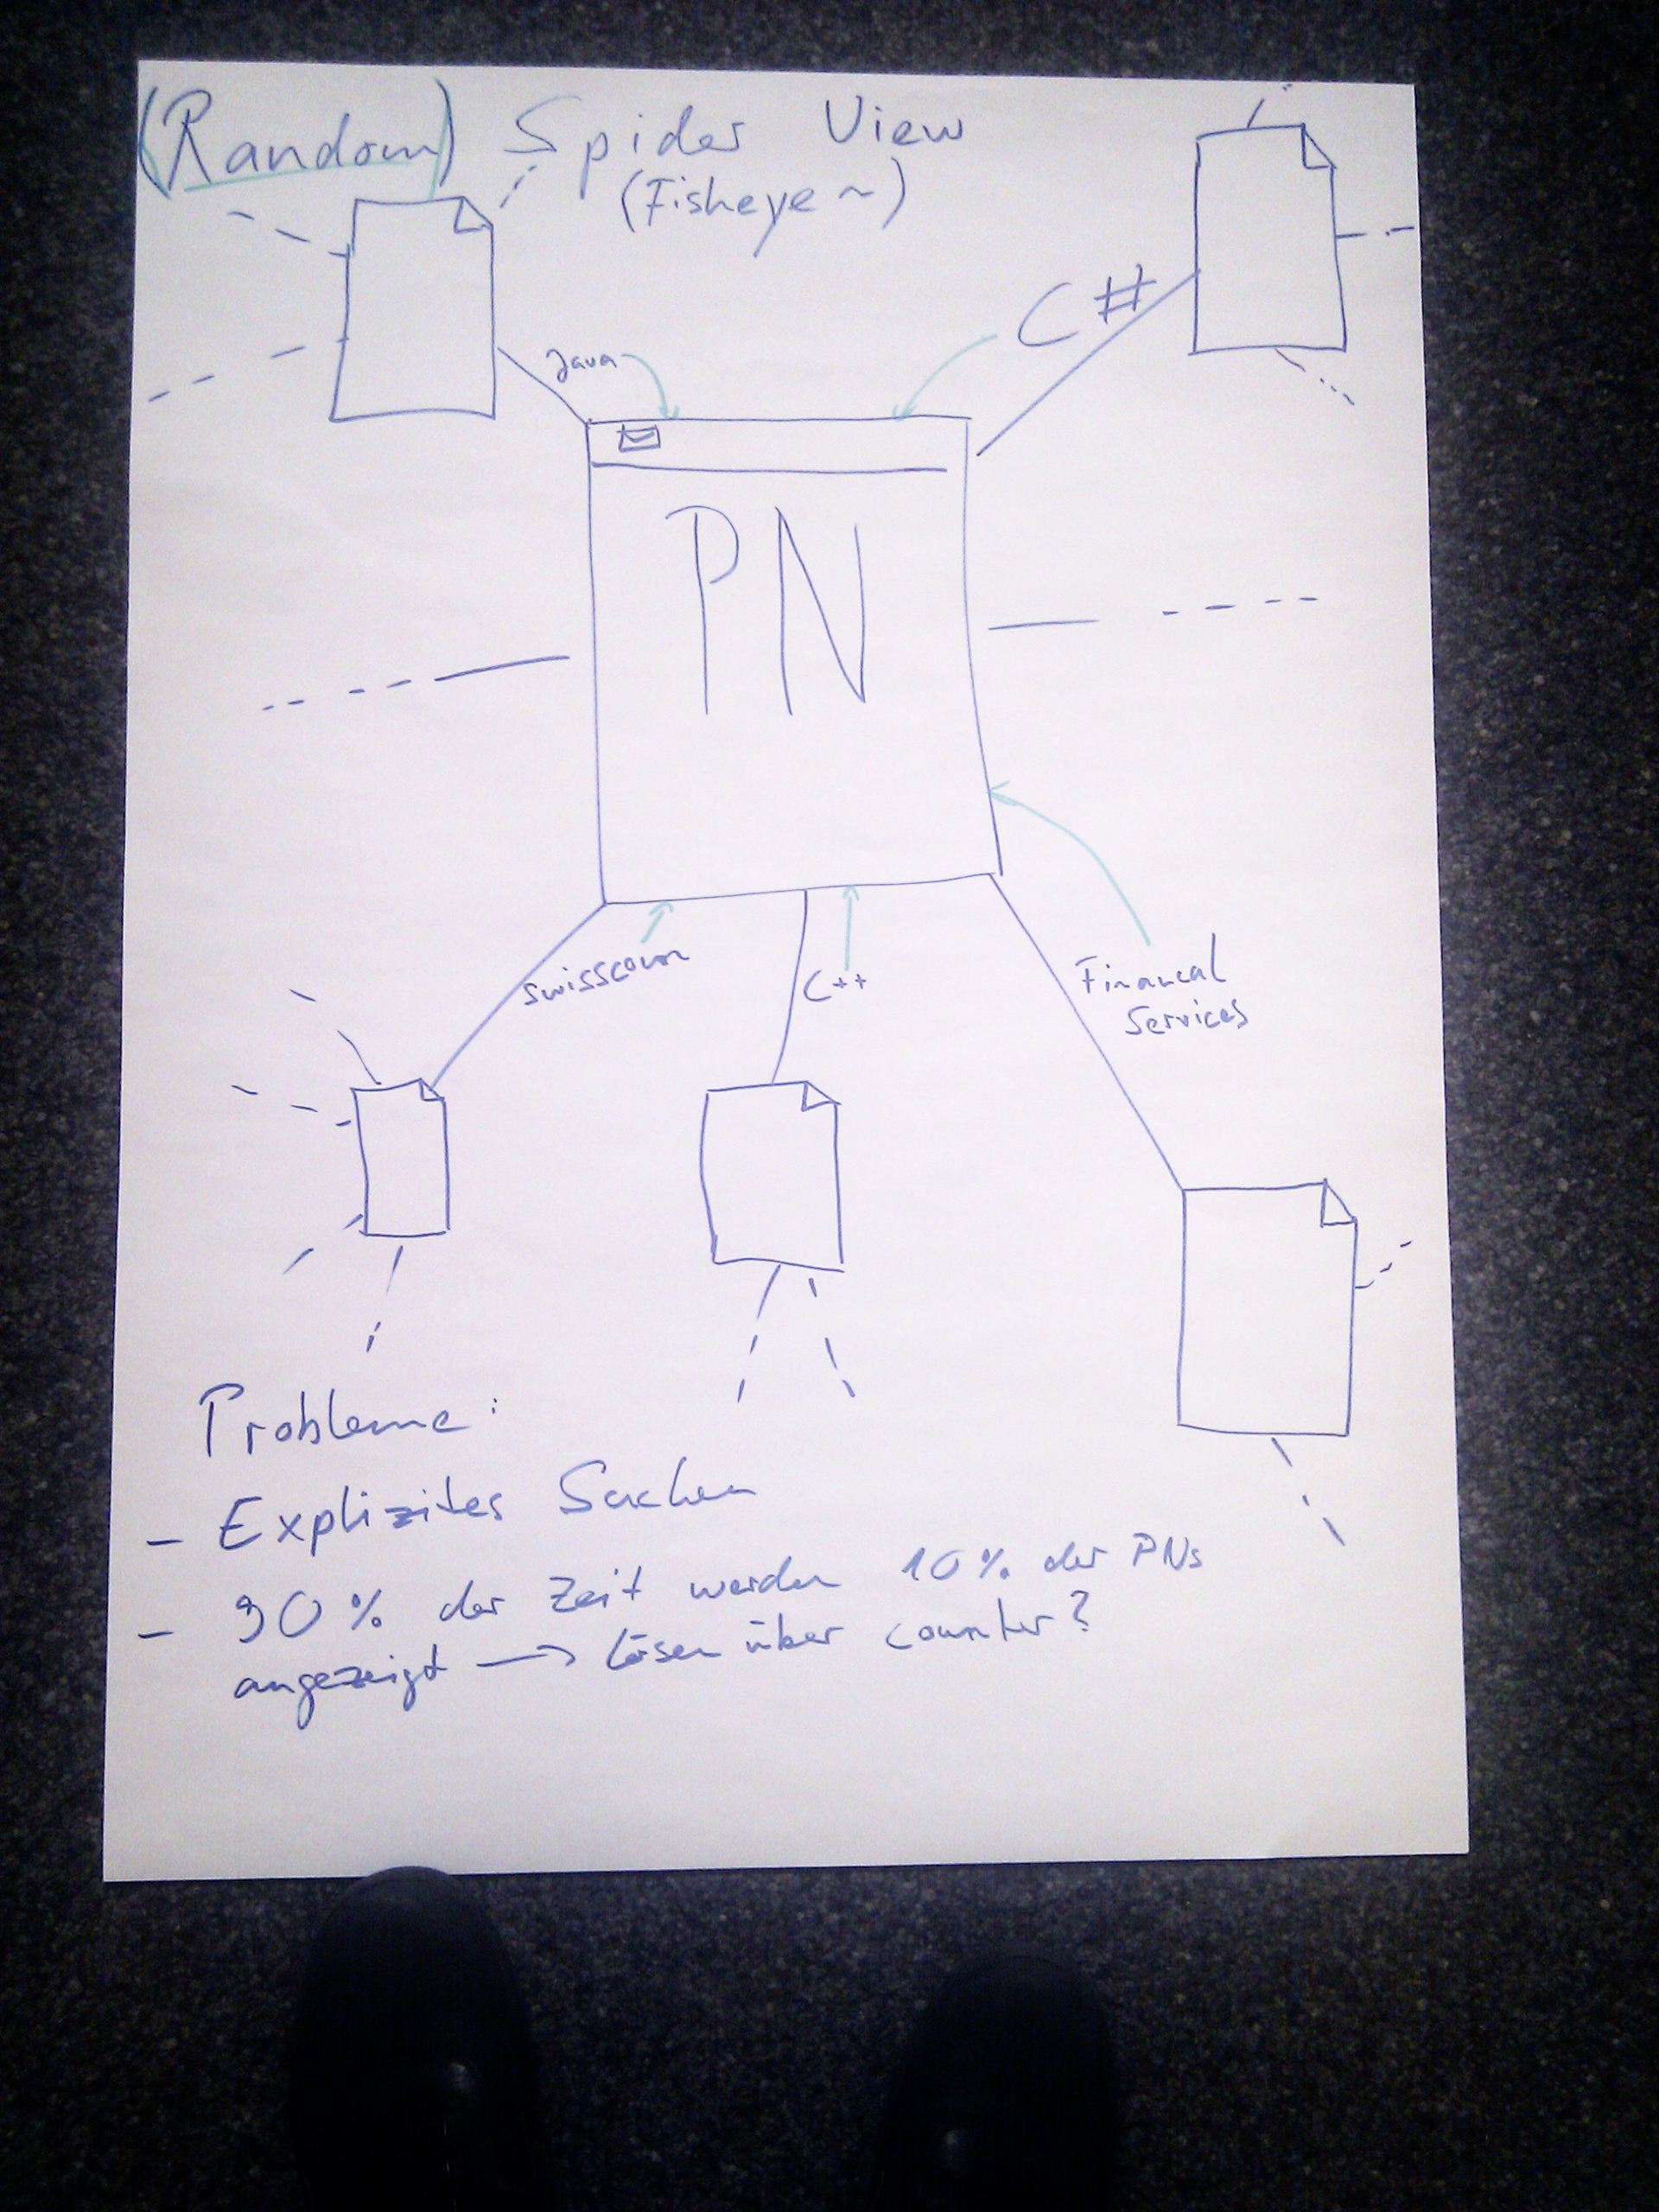 (Random) Spider View
(Fisheye ~)
C#
Java
PN
swisscom
C++
Financal
Services
Probleme:
- Explizites Suchen
- 90% der Zeit werden 10% der PNs
angezeigt → lösen über counter?